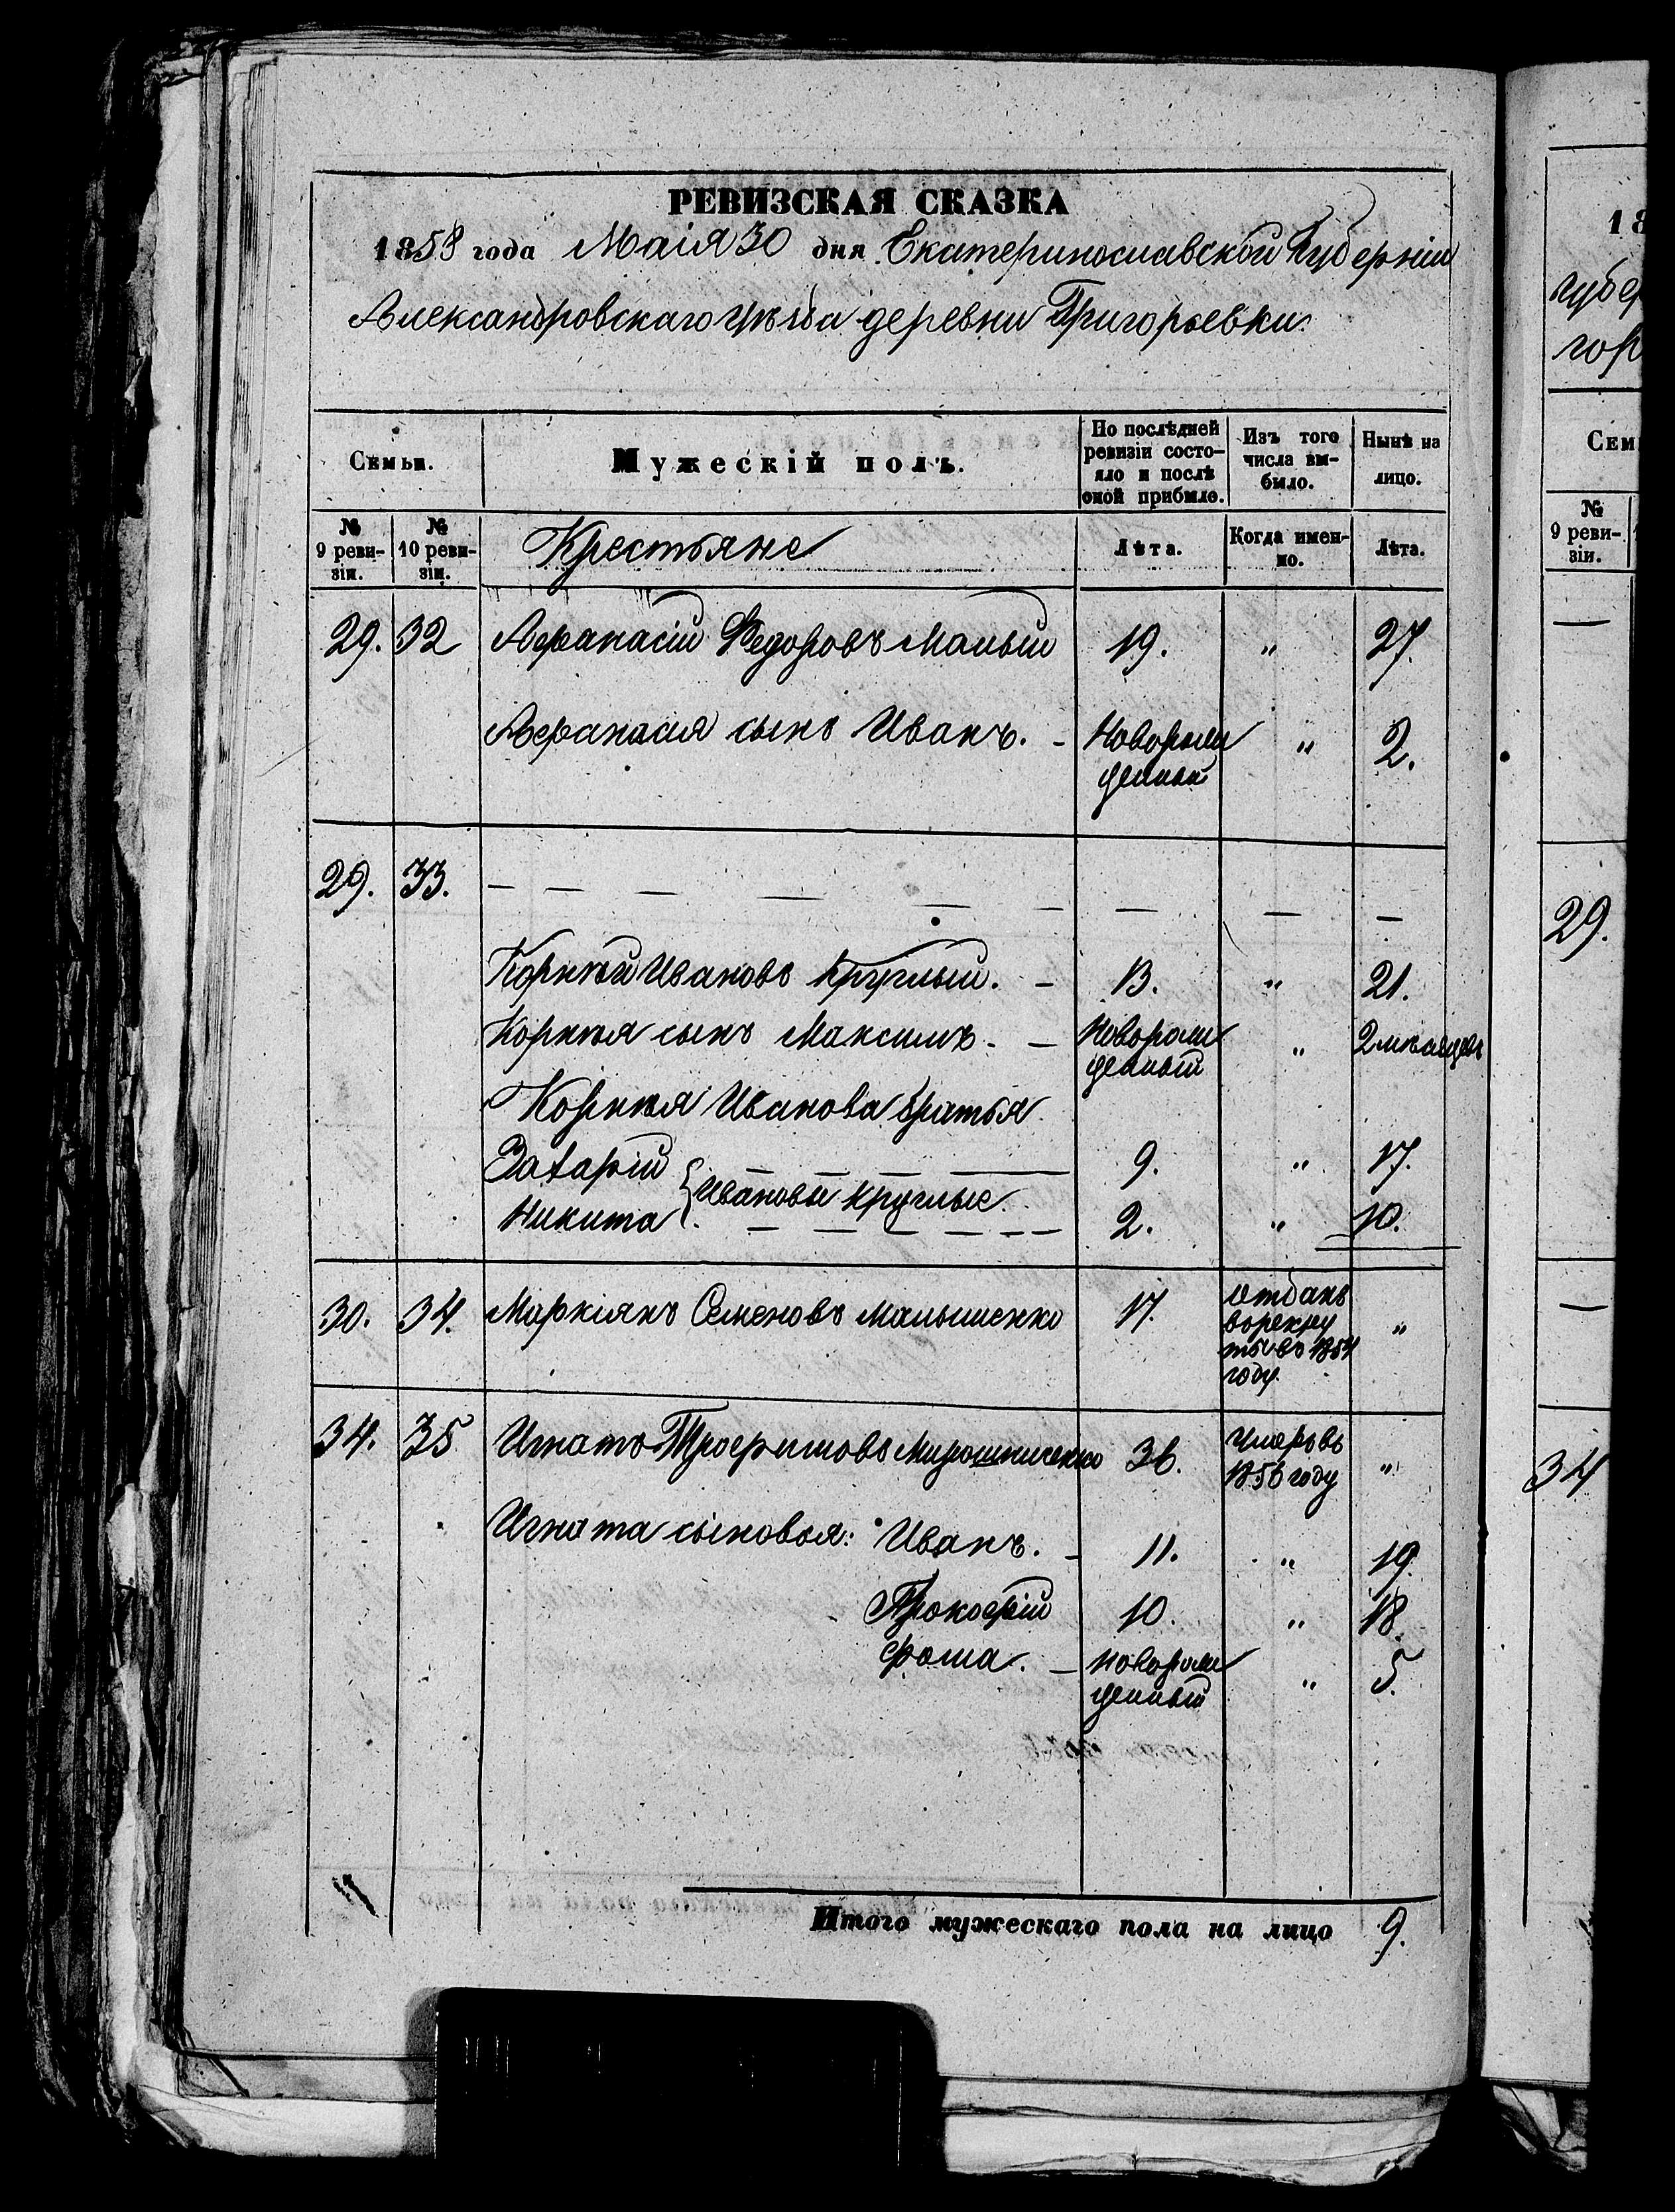 РЕВИЗСКАЯ СКАЗКА
1858 года Маія 30 дня Екатеринославской Губерніи
Александровскаго уѣзда деревни Григорьевки.
Семьи. Мужескій полъ. По послѣдней ревизіи состояло и послѣ оной прибыло. Изъ того числа выбыло. Нынѣ на лицо.
№ 9 ревизіи. № 10 ревизіи. Крестьяне Лѣта. Когда именно. Лѣта.
29. 32 Афанасій Федоровъ Малый 19. " 27.
Афанасія сынъ Иванъ. - Новорожденный " 2.
29. 33. — — — — — — — — —
Корнѣй Ивановъ Круглый. - 13. " 21.
Корнѣя сынъ Максимъ. - Новорожденный " 2 мѣсяцевъ
Корнѣя Иванова братья
Захарій 9. " 17.
{Ивановы Круглые.
Никита 2. " 10.
30. 34. Маркіянъ Семеновъ Малышенко 17. Отданъ в рекруты въ 1854 году "
34. 35 Игнатъ Трофимовъ Мирошниченко 36. Умеръ въ 1856 году "
Игната сыновья: Иванъ. - 11. " 19.
Прокофій 10. " 18.
Фома. - Новорожденный " 5.
Итого мужескаго пола на лицо 9.
18
губер
гор
Сем
№ 9 ревизіи.
—
29.
—
34